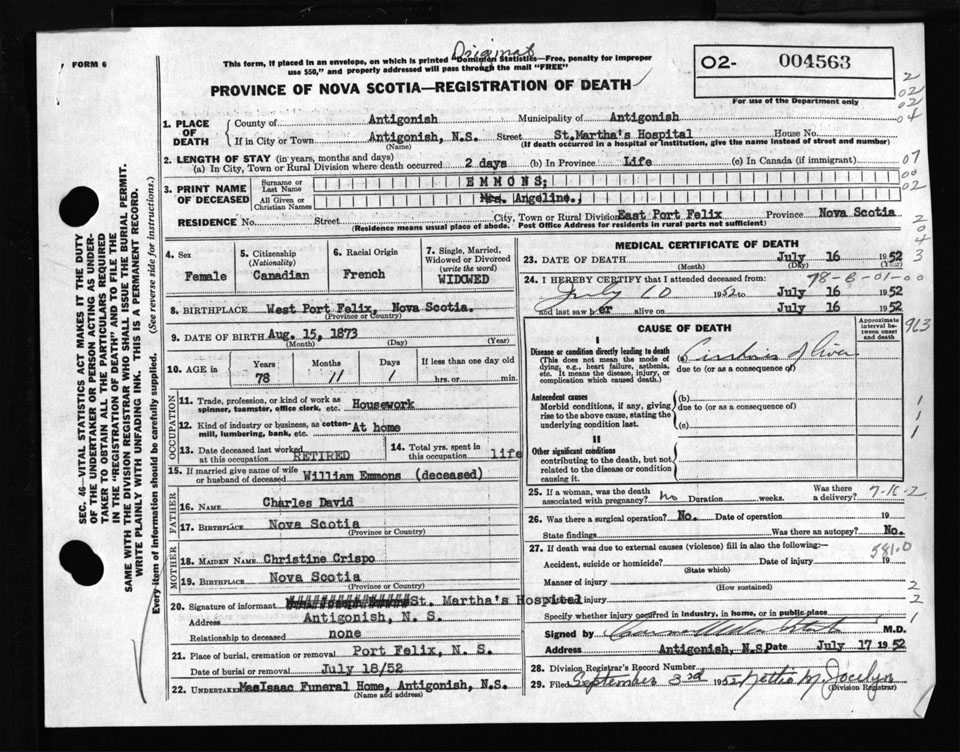 Original
FORM 6
This form, if placed in an envelope, on which is printed "Dominion Statistics—Free, penalty for improper
use $50," and properly addressed will pass through the mail "FREE"
02- 004563
For use of the Department only
PROVINCE OF NOVA SCOTIA—REGISTRATION OF DEATH
1. PLACE OF DEATH
County of Antigonish Municipality of Antigonish
If in City or Town Antigonish, N.S. Street St.Martha's Hospital House No.
(Name) (If death occurred in a hospital or institution, give the name instead of street and number)
2. LENGTH OF STAY (in years, months and days)
(a) In City, Town or Rural Division where death occurred 2 days (b) In Province Life (c) In Canada (if immigrant)
3. PRINT NAME OF DECEASED
Surname or Last Name EMMONS;
All Given or Christian Names Mrs. Angeline.,
RESIDENCE No. Street City, Town or Rural Division East Port Felix Province Nova Scotia
(Residence means usual place of abode. Post Office Address for residents in rural parts not sufficient)
2
02
02
04
07
00
02
2
0
4
3
SEC. 46—VITAL STATISTICS ACT MAKES IT THE DUTY
OF THE UNDERTAKER OR PERSON ACTING AS UNDER-
TAKER TO OBTAIN ALL THE PARTICULARS REQUIRED
IN THE "REGISTRATION OF DEATH" AND TO FILE THE
SAME WITH THE DIVISION REGISTRAR WHO SHALL ISSUE THE BURIAL PERMIT.
WRITE PLAINLY WITH UNFADING INK. THIS IS A PERMANENT RECORD.
Every item of information should be carefully supplied. (See reverse side for instructions.)
4. Sex
Female
5. Citizenship
(Nationality)
Canadian
6. Racial Origin
French
7. Single, Married,
Widowed or Divorced
(write the word)
WIDOWED
8. BIRTHPLACE West Port Felix, Nova Scotia.
(Province or Country)
9. DATE OF BIRTH Aug. 15, 1873
(Month) (Day) (Year)
10. AGE in
Years Months Days If less than one day old
78 11 1 hrs. or min.
OCCUPATION
11. Trade, profession, or kind of work as
spinner, teamster, office clerk, etc. Housework
12. Kind of industry or business, as cotton-
mill, lumbering, bank, etc. At home
13. Date deceased last worked
at this occupation RETIRED
14. Total yrs. spent in
this occupation life
15. If married give name of wife
or husband of deceased William Emmons (deceased)
FATHER
16. NAME Charles David
17. BIRTHPLACE Nova Scotia
(Province or Country)
MOTHER
18. MAIDEN NAME Christine Crispo
19. BIRTHPLACE Nova Scotia
(Province or Country)
20. Signature of informant St. Martha's Hospital
Address Antigonish, N. S.
Relationship to deceased none
21. Place of burial, cremation or removal Port Felix, N. S.
Date of burial or removal July 18/52
22. UNDERTAKER MacIsaac Funeral Home, Antigonish, N.S.
(Name and address)
MEDICAL CERTIFICATE OF DEATH
23. DATE OF DEATH July 16 1952
(Month) (Day) (Year)
24. I HEREBY CERTIFY that I attended deceased from: 78-8-01-00
July 10 1952 to July 16 1952
and last saw h er alive on July 16 1952
CAUSE OF DEATH
Approximate interval between onset and death
963
I
Disease or condition directly leading to death
(This does not mean the mode of
dying, e.g., heart failure, asthenia,
etc. It means the disease, injury, or
complication which caused death.)
(a) Cirrhosis of Liver
due to (or as a consequence of)
Antecedent causes
Morbid conditions, if any, giving
rise to the above cause, stating the
underlying condition last.
(b)
due to (or as a consequence of)
(c)
1
1
1
II
Other significant conditions
contributing to the death, but not
related to the disease or condition
causing it.
25. If a woman, was the death
associated with pregnancy? No Duration weeks. Was there
a delivery? 7-16-2
26. Was there a surgical operation? No. Date of operation 19
State findings Was there an autopsy? No.
27. If death was due to external causes (violence) fill in also the following:— 581.0
Accident, suicide or homicide? Date of injury 19
(State which)
Manner of injury 2
(How sustained)
Nature of injury 2
Specify whether injury occurred in industry, in home, or in public place 1
Signed by M.D.
Address Antigonish, N.S. Date July 17 1952
28. Division Registrar's Record Number
29. Filed September 3rd 1952 Nettie M. Jocelyn
(Division Registrar)